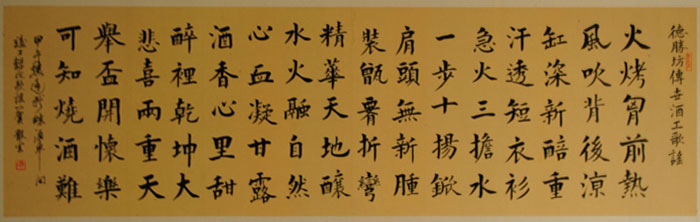 德勝坊傳世酒工歌謠
火烤胷前熱
風吹背後涼
缸深新醅重
汗透短衣衫
急火三擔水
一步十揚鍁
肩頭無新腫
裝甑膂折彎
精華天地釀
水火融自然
心血凝甘露
酒香心里甜
醉裡乾坤大
悲喜兩重天
舉盃開懷樂
可知燒酒難
甲午